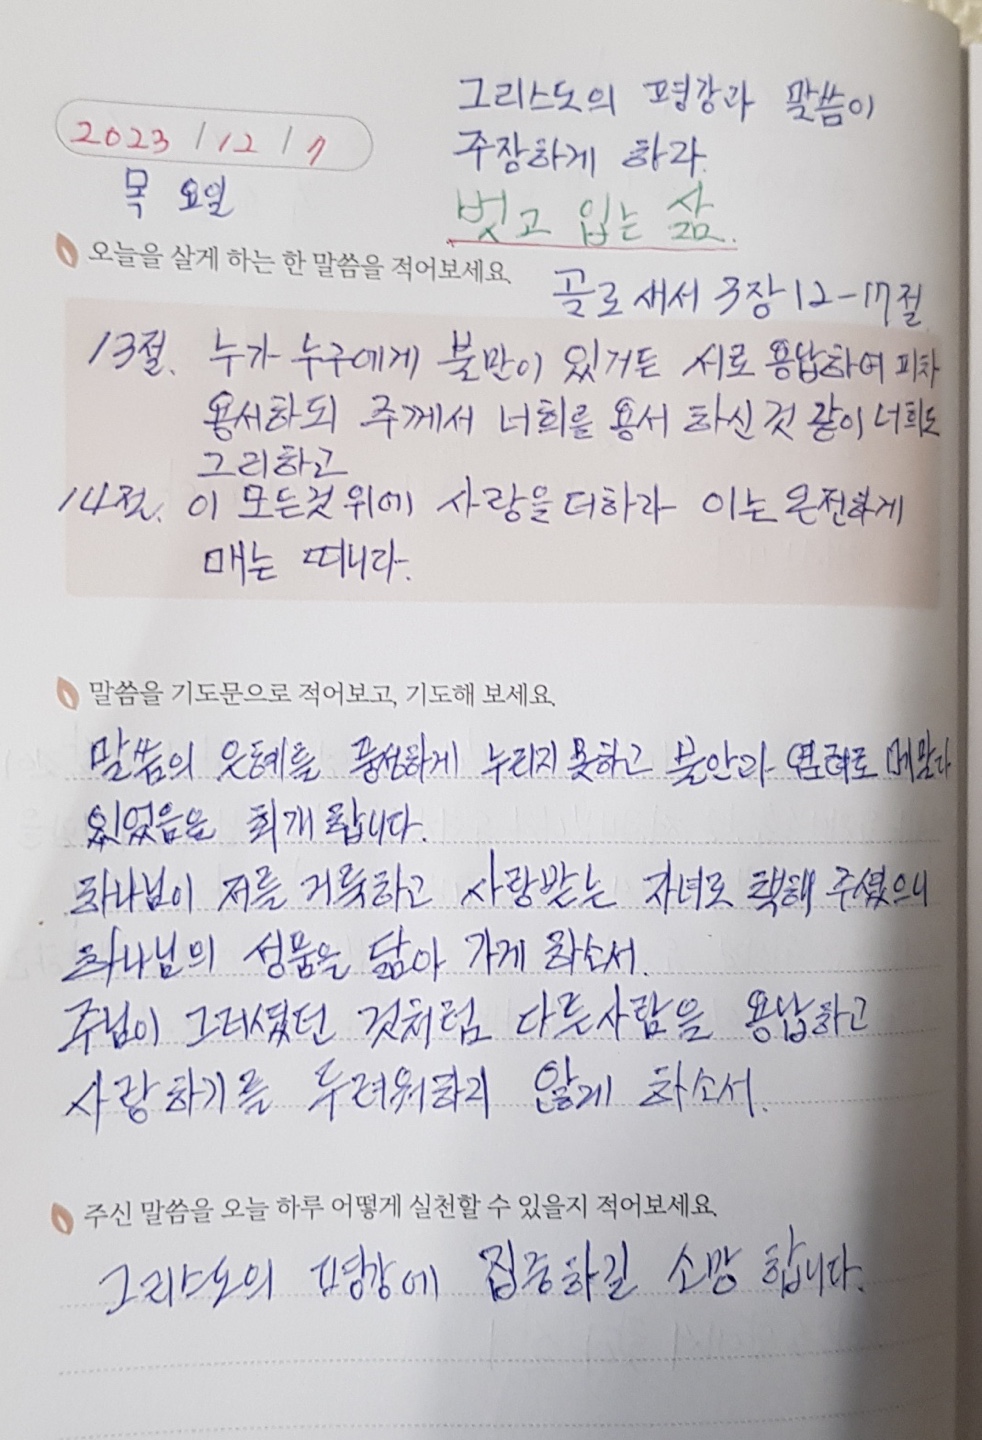 2023 / 12 / 7
목 요일
그리스도의 평강과 말씀이
주장하게 하라.
벗고 입는 삶.
오늘을 살게 하는 한 말씀을 적어보세요.
골로새서 3장 12-17절
13절. 누가 누구에게 불만이 있거든 서로 용납하여 피차
용서하되 주께서 너희를 용서 하신 것 같이 너희도
그리하고
14절. 이 모든것 위에 사랑을 더하라 이는 온전하게
매는 띠니라.
말씀을 기도문으로 적어보고, 기도해 보세요.
말씀의 은혜를 풍성하게 누리지 못하고 불안과 염려로
있었음을 회개 합니다.
하나님이 저를 거룩하고 사랑받는 자녀로 택해 주셨으니
하나님의 성품을 닮아 가게 하소서.
주님이 그러셨던 것처럼 다른사람을 용납하고
사랑하기를 두려워하지 않게 하소서.
주신 말씀을 오늘 하루 어떻게 실천할 수 있을지 적어보세요.
그리스도의 평강에 집중하길 소망 합니다.